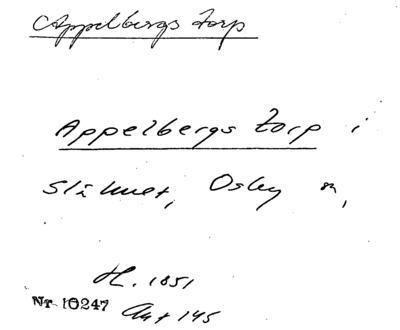 Appelbergs torp
Appelbergs torp i
Slähult, Osby sn,
H. 1851
Nr 10247 Ant 145